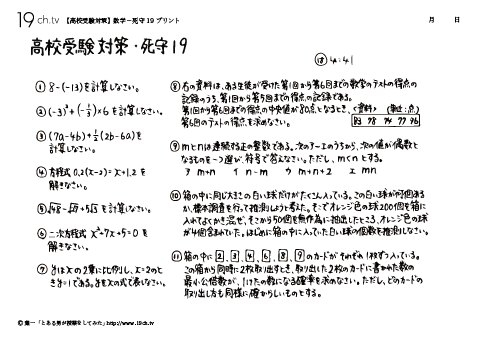 19ch.tv 【高校受験対策】数学-死守19プリント 月 日
高校受験対策・死守19
① 8-(-13)を計算しなさい。
② (-3)²+(-½)×6 を計算しなさい。
③ (7a-4b)+½(2b-6a)を
計算しなさい。
④ 方程式 0.2(x-2)=x+1.2 を
解きなさい。
⑤ √48-√27+5√3 を計算しなさい。
⑥ 二次方程式 x²+7x+5=0 を
解きなさい。
⑦ yはxの2乗に比例し、x=2のと
きy=1である。yをxの式で表しなさい。
⑧ 右の資料は、ある生徒が受けた第1回から第6回までの数学のテストの得点の
記録のうち、第1回から第5回までの得点の記録である。
第1回から第6回までの得点の中央値が80点となるとき、
第6回のテストの得点を求めなさい。
<資料> (単位:点)
83 78 74 77 96
⑨ mとnは連続する正の整数である。次のア~エのうちから、次の値が偶数と
なるものを一つ選び、符号で答えなさい。ただし、m<nとする。
ア m+n イ n-m ウ m+n+2 エ mn
⑩ 箱の中に同じ大きさの白い球だけがたくさん入っている。この白い球が何個ある
か、標本調査を行って推測しようと考えた。そこでオレンジ色の球200個を箱に
入れてよくかき混ぜ、そこから50個を無作為に抽出したところ、オレンジ色の球
が4個含まれていた。はじめに箱の中に入っていた白い球の個数を推測しなさい。
⑪ 箱の中に 2、3、4、6、8、9 のカードがそれぞれ1枚ずつ入っている。
この箱から同時に2枚取り出すとき、取り出した2枚のカードに書かれた数の
最小公倍数が、1けたの数になる確率を求めなさい。ただし、どのカードの
取り出し方も同様に確からしいものとする。
© 葉一「とある男が授業をしてみた」http://www.19ch.tv